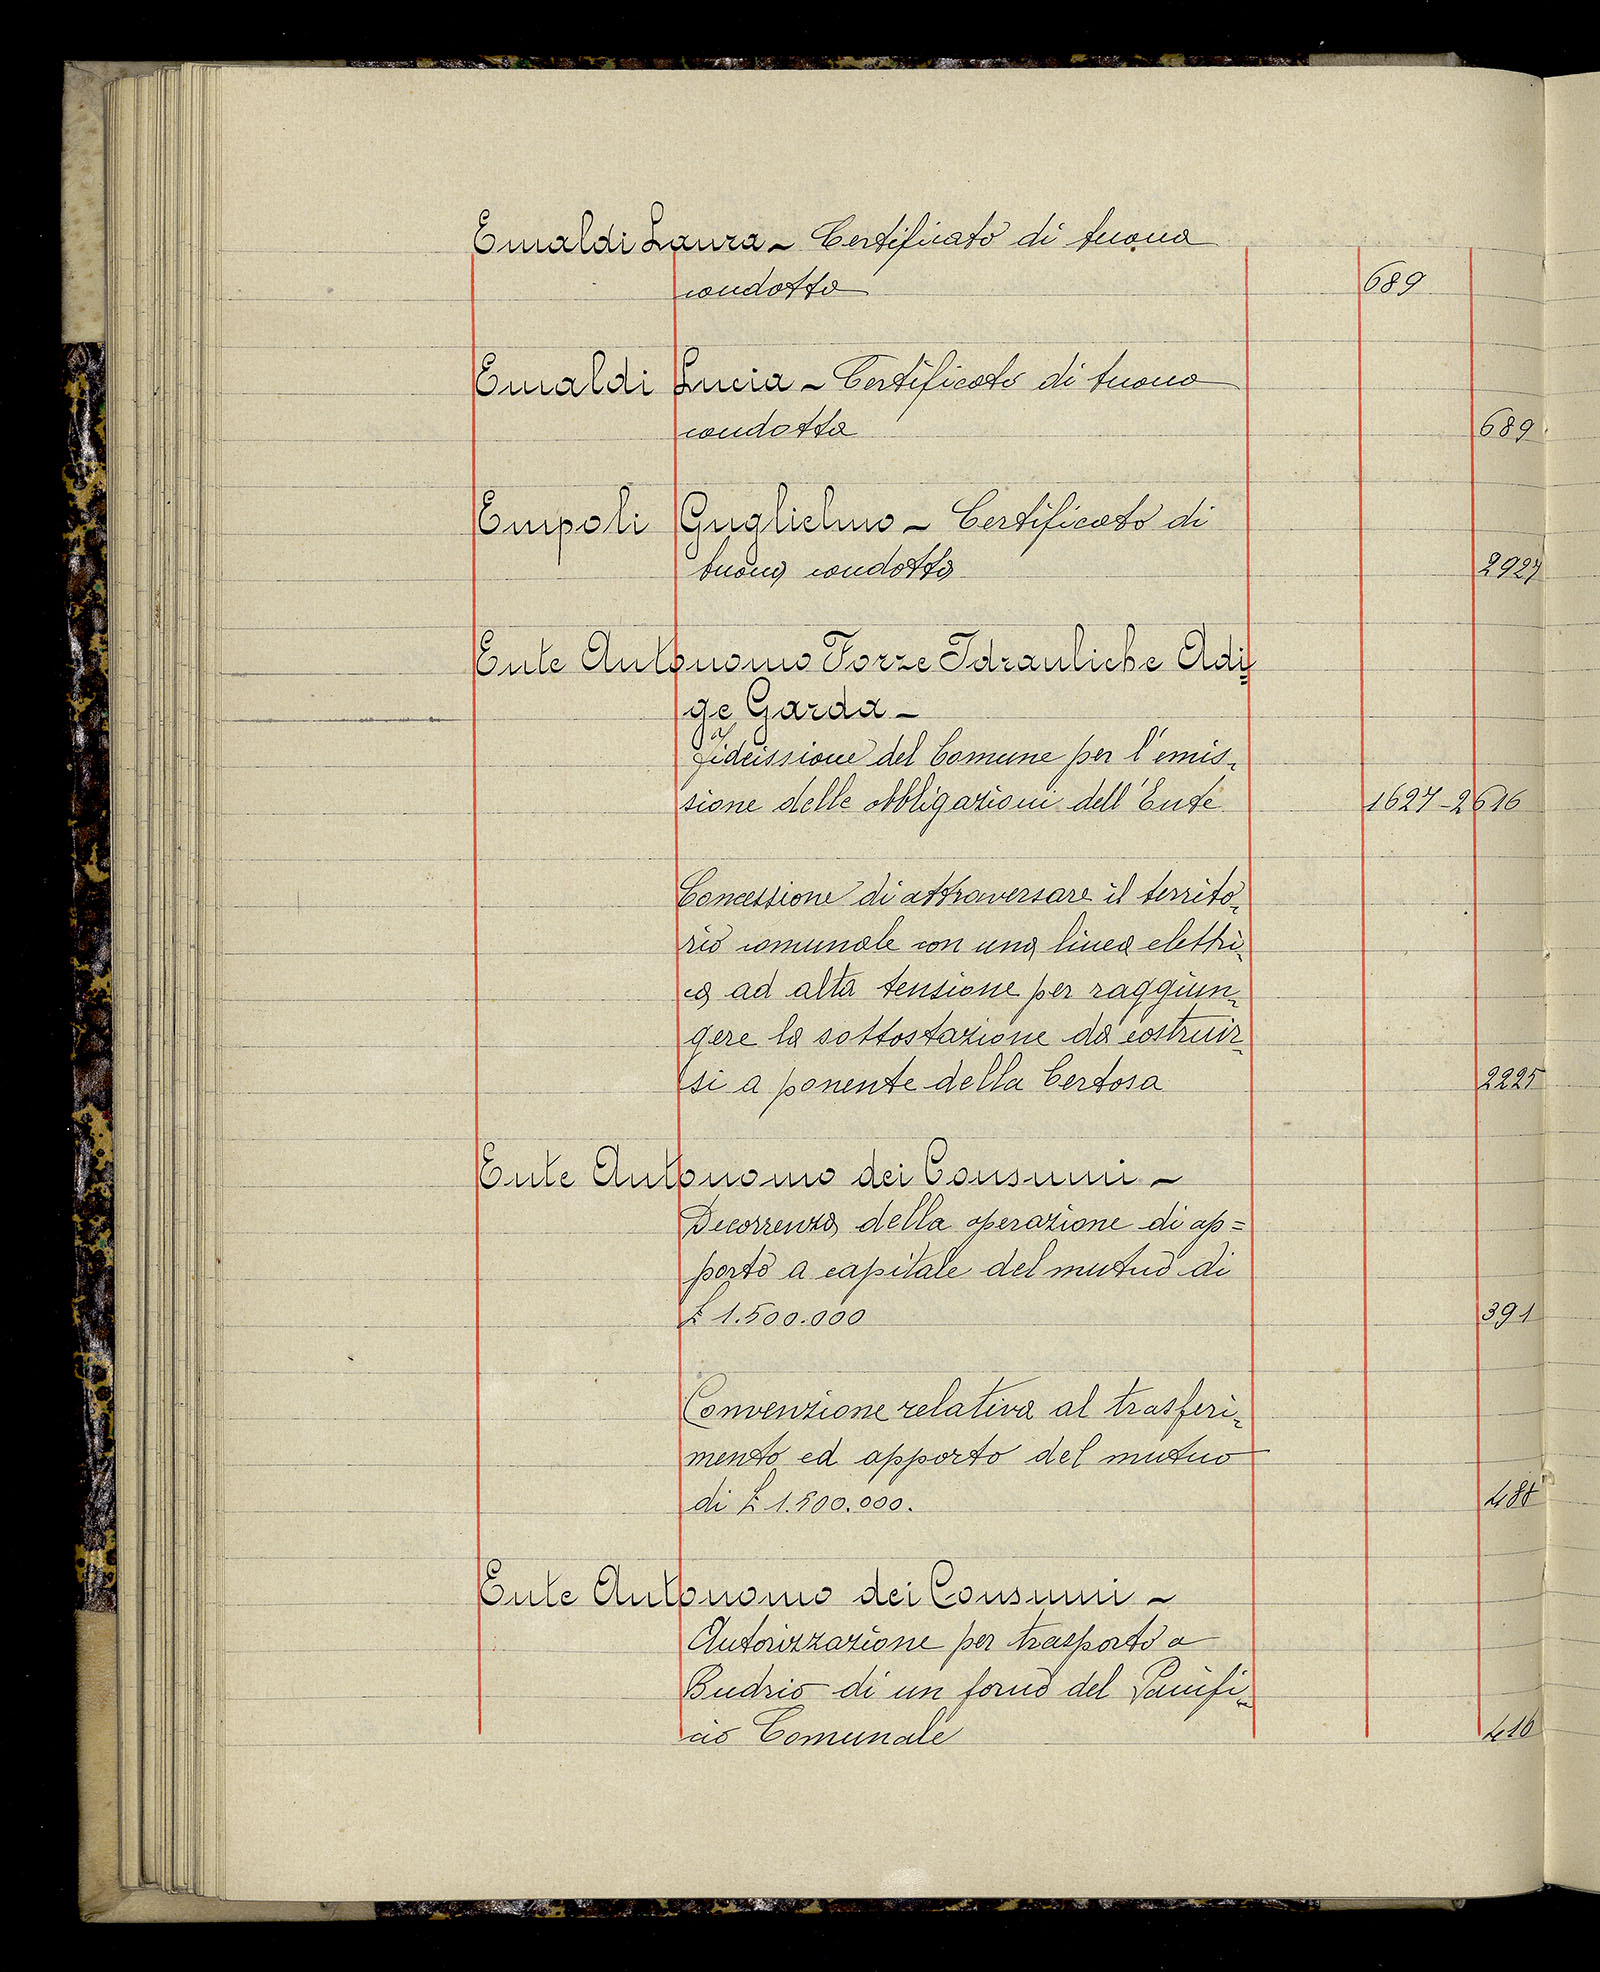 Emaldi Laura - Certificato di buona
condotta 689
Emaldi Lucia - Certificato di buona
condotta 689
Empoli Guglielmo - Certificato di
buona condotta 2927
Ente Autonomo Forze Idrauliche Adi=
ge Garda -
Fideissione del Comune per l'emis=
sione delle obbligazioni dell'Ente 1627-2616
Concessione di attraversare il territo=
rio comunale con una linea elettri=
ca ad alta tensione per raggiun=
gere la sottostazione da costruir=
si a ponente della Certosa 2225
Ente Autonomo dei Consumi -
Decorrenza della operazione di ap=
porto a capitale del mutuo di
£ 1.500.000 391
Convenzione relativa al trasferi=
mento ed apporto del mutuo
di £ 1.500.000. 488
Ente Autonomo dei Consumi -
Autorizzazione per trasporto a
Budrio di un forno del Panifi=
cio Comunale 410